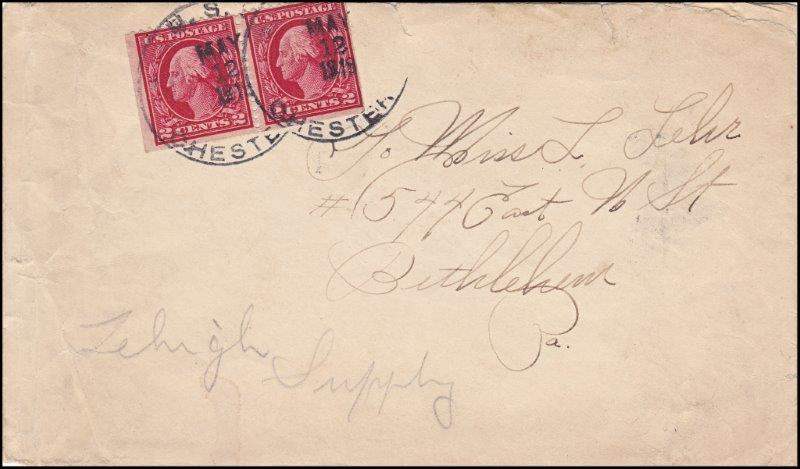 U. S.
U.S. POSTAGE
U.S. POSTAGE
MAY
12
MAY
12
2 CENTS 2
CENTS 2
CHESTER
CHESTER
To Miss L. Lehr
# 544 East N St
Bethlehem
Pa.
Lehigh
Supply